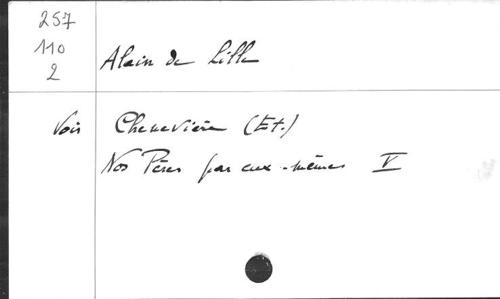 257
110
2
Alain de Lille
Voir Chenevière (Et.)
Nos Pères par eux-mêmes V